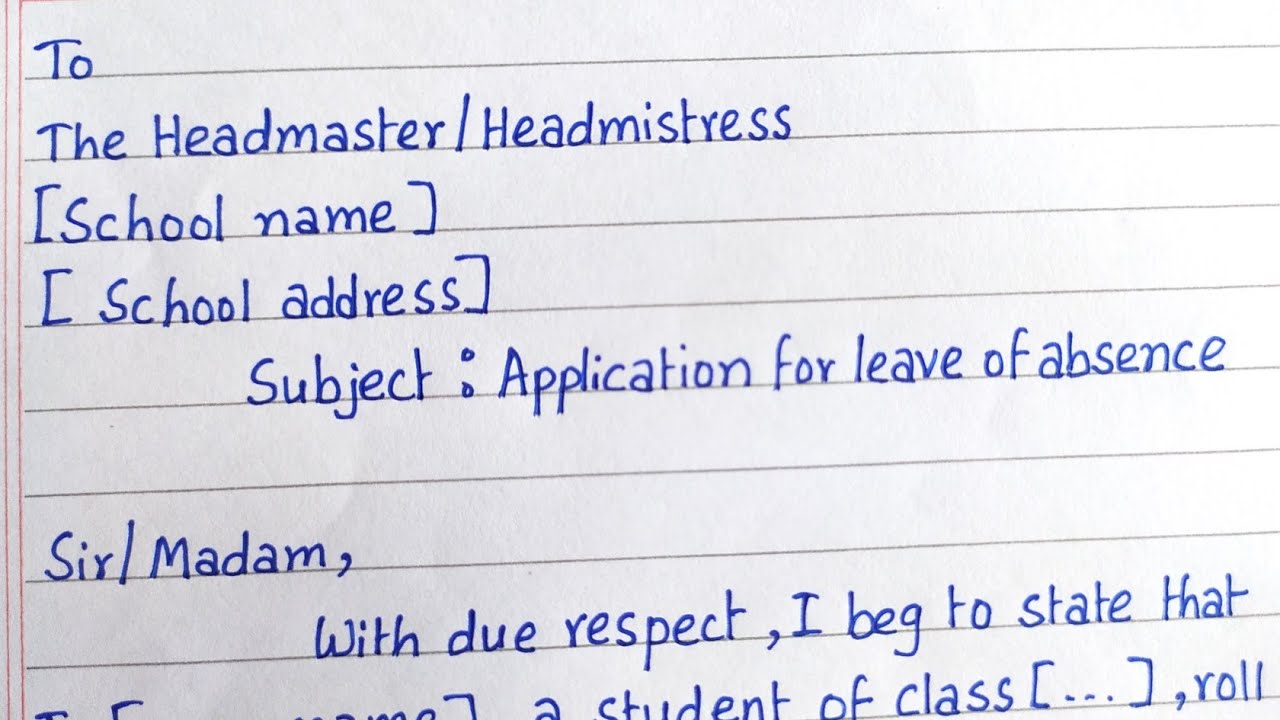 To
The Headmaster/Headmistress
[School name]
[ School address]
Subject : Application for leave of absence
Sir/Madam,
With due respect, I beg to state that
name], a student of class [...], roll